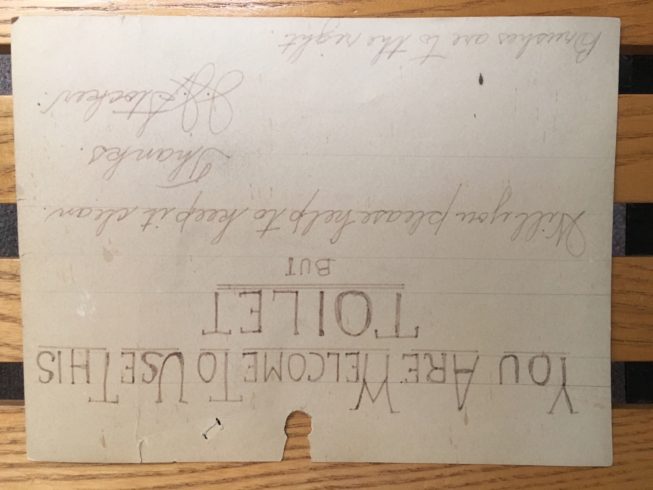 YOU ARE WELCOME TO USE THIS
TOILET
BUT
Will you please help to keep it clean.
Thanks.
Stocker.
Brushes are to the right.